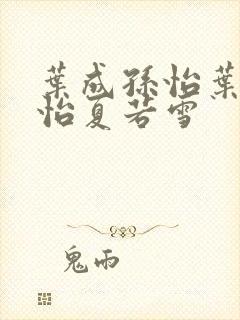 葉成孫怡葉
怡夏若雪
鬼雨